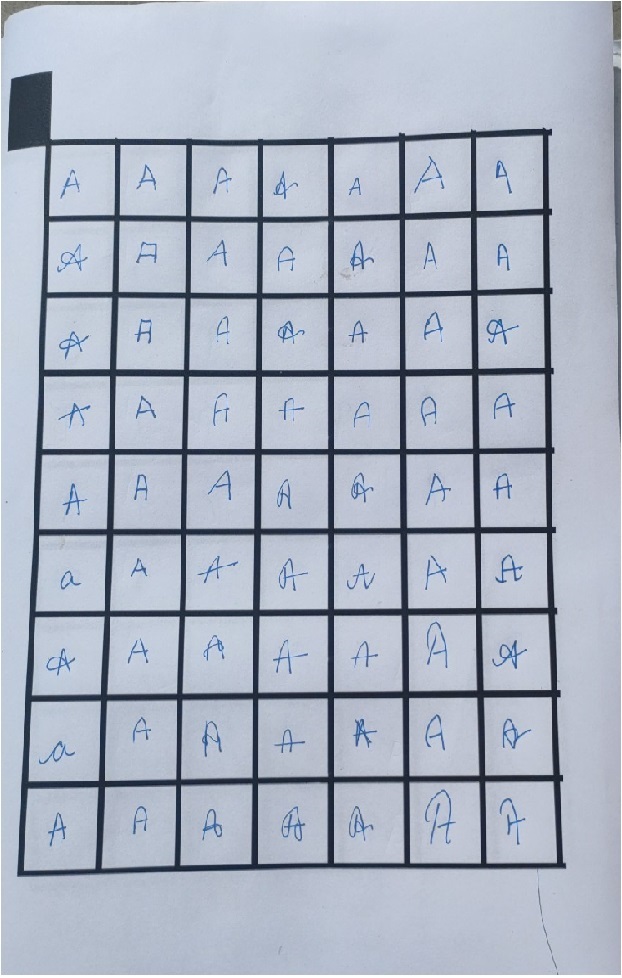 A A A A A A A
A A A A A A A
A A A A A A A
A A A A A A A
A A A A A A A
a A A A A A A
A A A A A A A
a A A A A A A
A A A A A A A